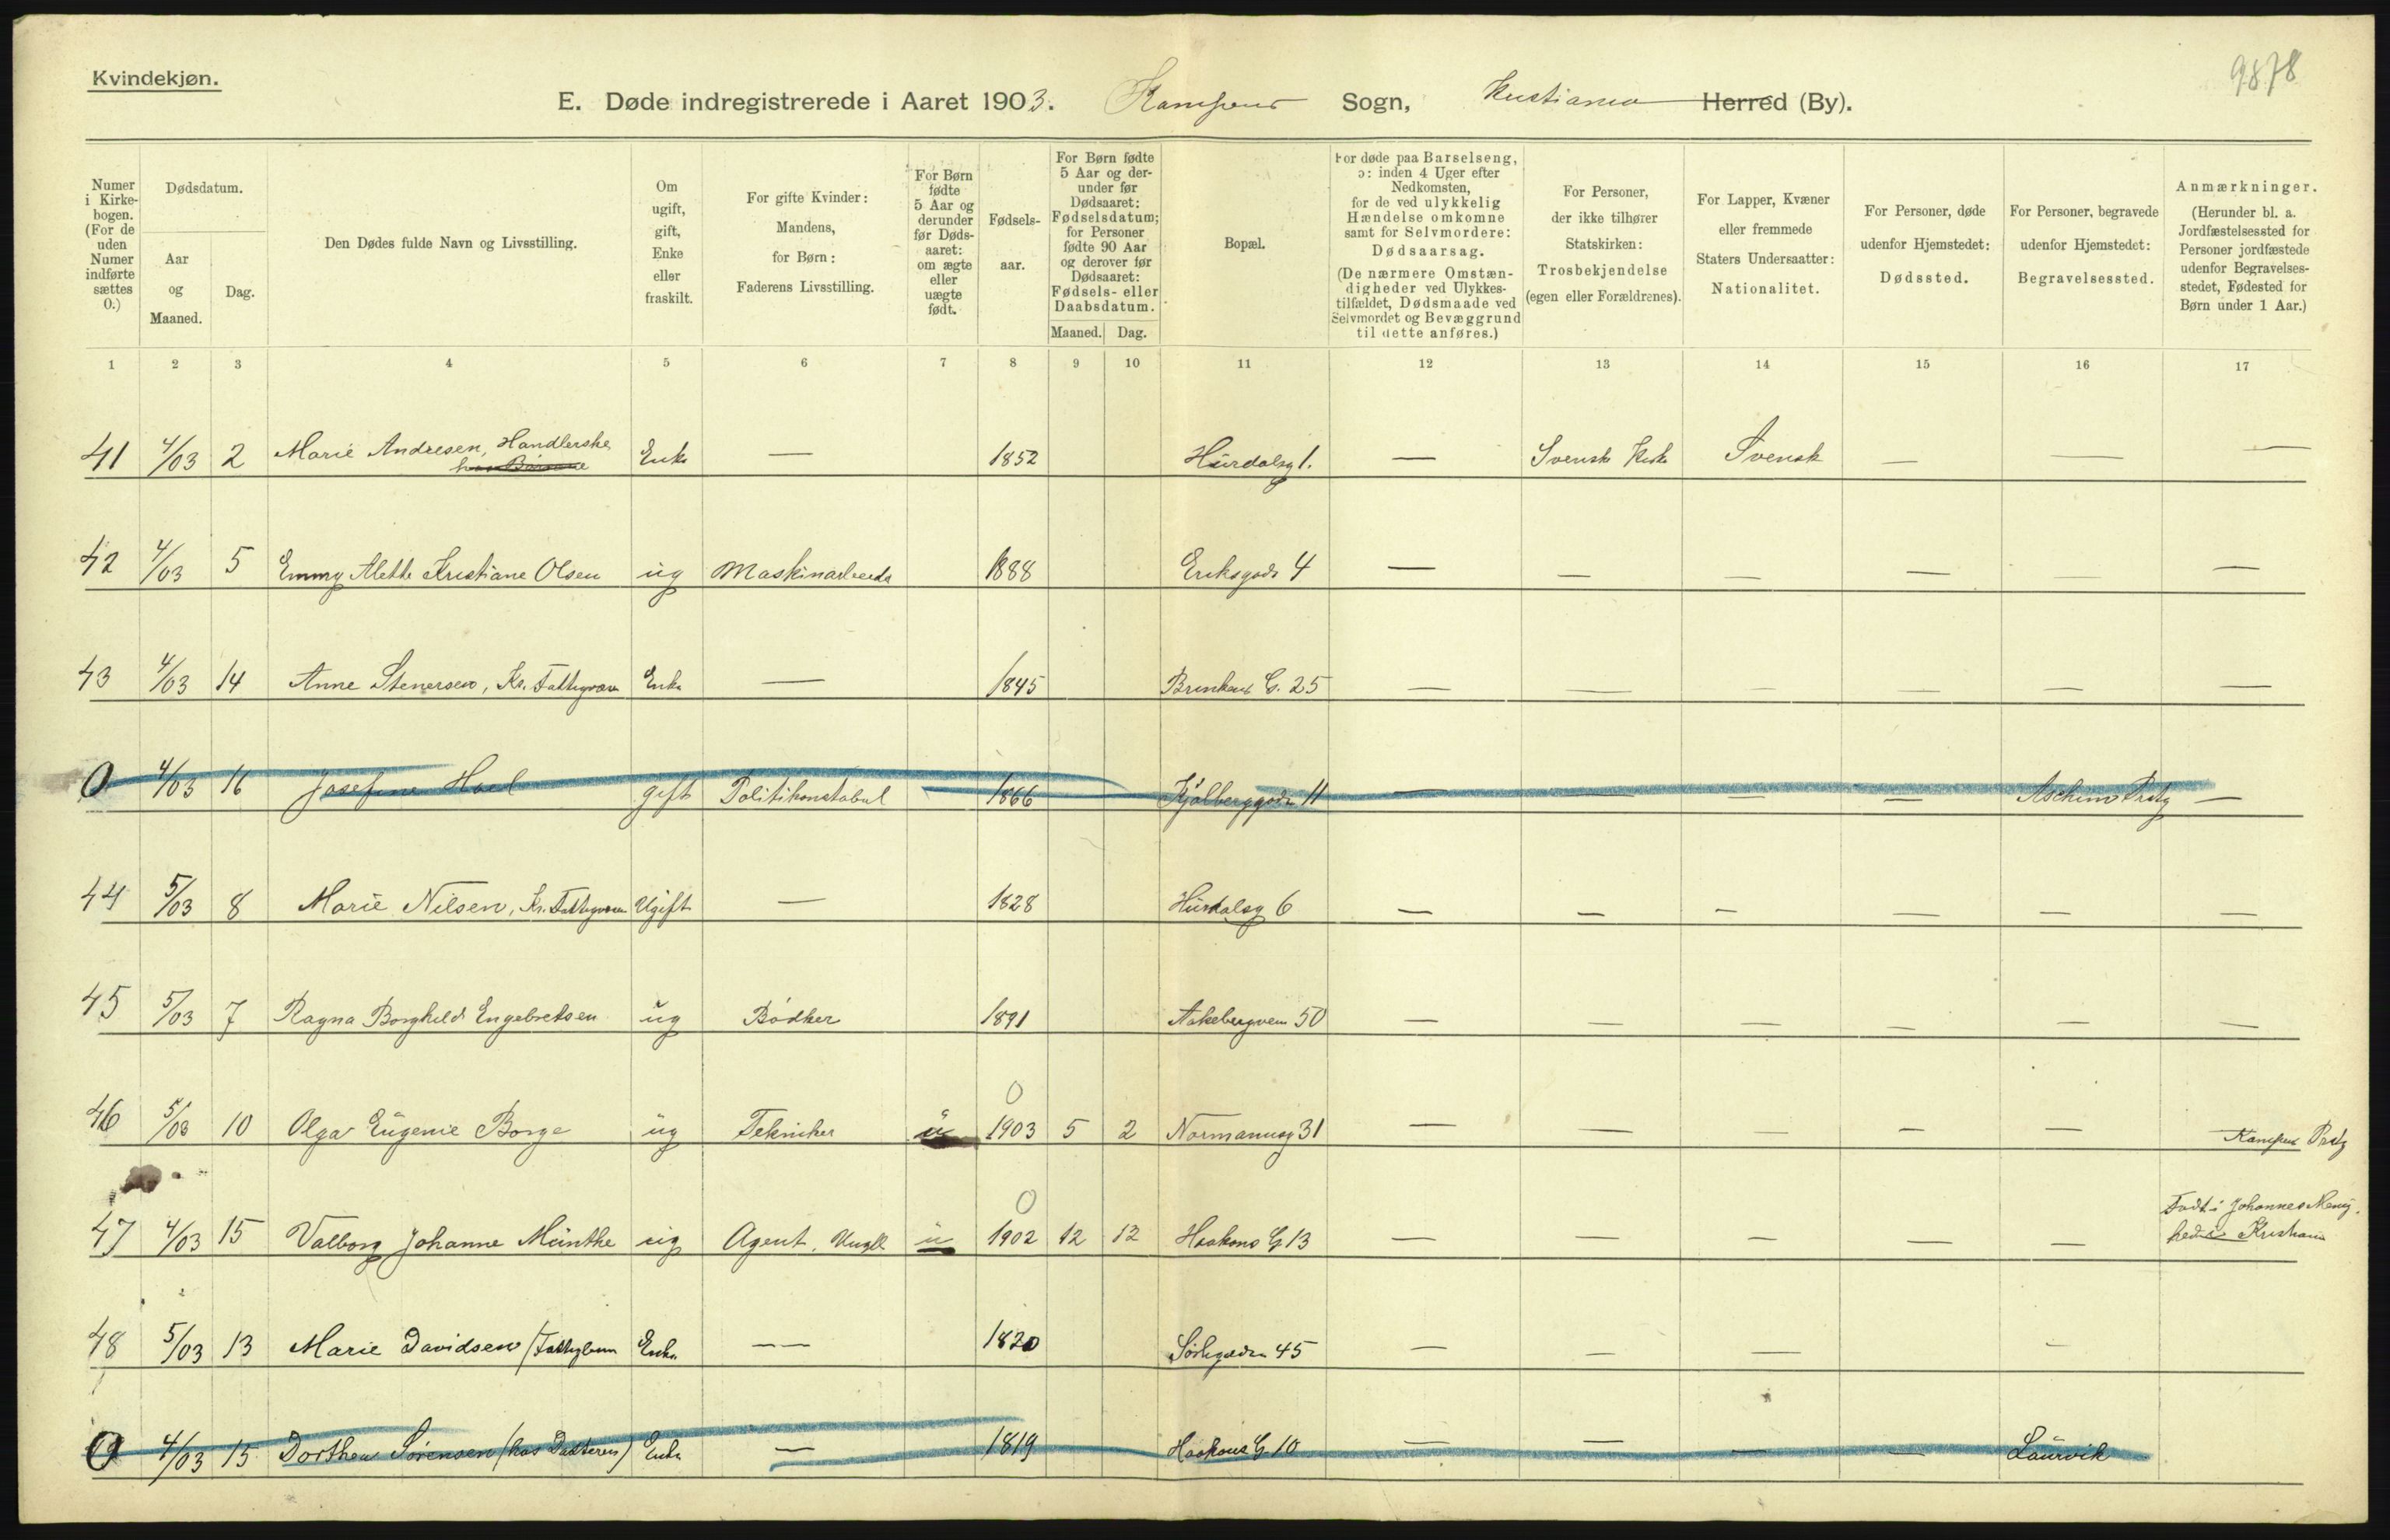 Kvindekjøn.
9878
E. Døde indregistrerede i Aaret 1903. Kampens Sogn, Kristiania Herred (By).
Numer i Kirke-bogen. (For de uden Numer indførte sættes 0.)
Dødsdatum.
Aar og Maaned.
Dag.
Den Dødes fulde Navn og Livsstilling.
Om ugift, gift, Enke eller fraskilt.
For gifte Kvinder: Mandens, for Børn: Faderens Livsstilling.
For Børn fødte 5 Aar og derunder før Døds-aaret: om ægte eller uægte født.
Fødsels-aar.
For Børn fødte 5 Aar og der-under før Dødsaaret: Fødselsdatum; for Personer fødte 90 Aar og derover før Dødsaaret: Fødsels- eller Daabsdatum.
Maaned. Dag.
Bopæl.
For døde paa Barselseng, ɔ: inden 4 Uger efter Nedkomsten, for de ved ulykkelig Hændelse omkomne samt for Selvmordere: Dødsaarsag. (De nærmere Omstæn-digheder ved Ulykkes-tilfældet, Dødsmaade ved Selvmordet og Bevæggrund til dette anføres.)
For Personer, der ikke tilhører Statskirken: Trosbekjendelse (egen eller Forældrenes).
For Lapper, Kvæner eller fremmede Staters Undersaatter: Nationalitet.
For Personer, døde udenfor Hjemstedet: Dødssted.
For Personer, begravede udenfor Hjemstedet: Begravelsessted.
Anmærkninger. (Herunder bl. a. Jordfæstelsessted for Personer jordfæstede udenfor Begravelses-stedet, Fødested for Børn under 1 Aar.)
1 2 3 4 5 6 7 8 9 10 11 12 13 14 15 16 17
41 4/03 2 Marie Andresen, Handlerske Enke — 1852 Hurdalsg 1. — Svensk Kirke Svensk — — —
42 4/03 5 Emmy Alette Kristiane Olsen ug Maskinarbeider 1888 Eriksgade 4 — — — — — —
43 4/03 14 Anne Stenersen, Kr. Fattigvæsen Enke — 1845 Brinkens G. 25 — — — — — —
0 4/03 16 Josefine Hoel gift Politikonstabel 1866 Kjølberggaden 11 — — — — Aschim Prstg —
44 5/03 8 Marie Nilsen, Kr. Fattigvæsen Ugift — 1828 Hurdalsg 6 — — — — — —
45 5/03 7 Ragna Borghild Engebretsen ug Bødker 1891 Aakebergveien 50 — — — — — —
46 5/03 10 Olga Eugenie Borge ug Tekniker u 0 1903 5 2 Normannsg 31 — — — — — Kampens Prstg
47 4/03 15 Valborg Johanne Munthe ug Agent, Ungk u 0 1902 12 12 Haakons G 13 — — — — — Født i Johannes Menig-
hed i Kristiania
48 5/03 13 Marie Davidsen / Fattiglem Enke — — 1820 Sørligaden 45 — — — —
0 4/03 15 Dorthea Sørensen (hos Datteren) Enke — 1819 Haakons G. 10 — — — — Laurvik